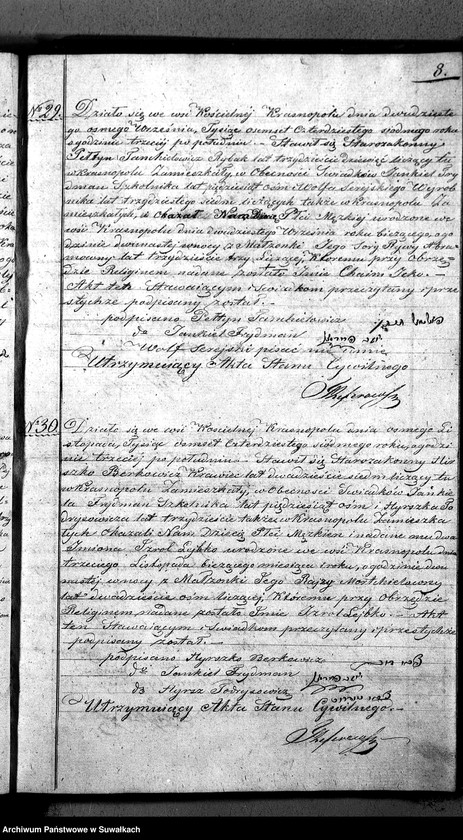 8.
No 29.
Działo się we wsi Kościelny Krasnopolu dnia dwudzieste
go osmego Września, Tysiąc osmset Czterdziestego siodmego roku
o godzinie trzeciej po południu – Stawił się Starozakonny
Rybak lat trzydzieści dziewięć liczący tu
w Krasnopolu Zamieszkały, w Obecności Swiadków Jankiel Fryd
man Szkolnika lat pięćdziesiąt ośm i Wolfa Serejskiego Wyrob
nika lat trzydziestego siedm liczących także w Krasnopolu Za
mieszkałych, i Okazał Nam Dziecię Płci Męzkiej urodzone we
wsi Krasnopolu dnia dwudziestego Września roku bieżącego, o go
dzinie dwunastej w nocy z Małżonki Jego Sory Rywy Abra
mowny lat trzydzieście trzy liczącej, Któremu przy Obrzę
dzie Religinem nadane zostało Imie Chaim Jcko. –
Akt ten Stawaiącym i Swiadkom przeczytany i prze
stychże podpisany został. –
podpisano
do Jankiel Frydman
Wolf Serejski pisać nie umie
Utrzymuiący Akta Stanu Cywilnego
No 30.
Działo się we wsi Kościelny Krasnopolu dnia osmego Li
stopada, Tysiąc osmset Czterdziestego siódmego roku, o godzi
nie trzeciej po południu – Stawił się Starozakonny Hir
szko Berkowicz Krawiec lat dwadzieście siedm liczący tu
w Krasnopolu Zamieszkały, w Obecności Swiadków Jankie
la Frydman Szkolnika lat pięćdziesiąt ośm i Hyrszka To
drysowicza lat trzydzieście także w Krasnopolu Zamieszka
łych Okazali Nam Dziecię Płci Męzkiei i nadane mu dwa
Imiona Jzrol Leybko urodzone we wsi Krasnopolu dnia
trzeciego Listopada bieżącego miesiąca i roku, o godzinie dwu
nastej w nocy z Małżonki Jego Rajzy Mortchielowny
lat dwadzieście ośm liczącej, Któremu przy Obrzędzie
Religinem nadane zostało Imie Jzrol Leybko. – Akt
ten Stawaiącym i Swiadkom przeczytany i przestychże
podpisany został. –
podpisano Hyrszko Berkowicz
do Jankiel Frydman
do Hyrsz Todrysowicz
Utrzymuiący Akta Stanu Cywilnego. –
Archiwum Państwowe w Suwałkach